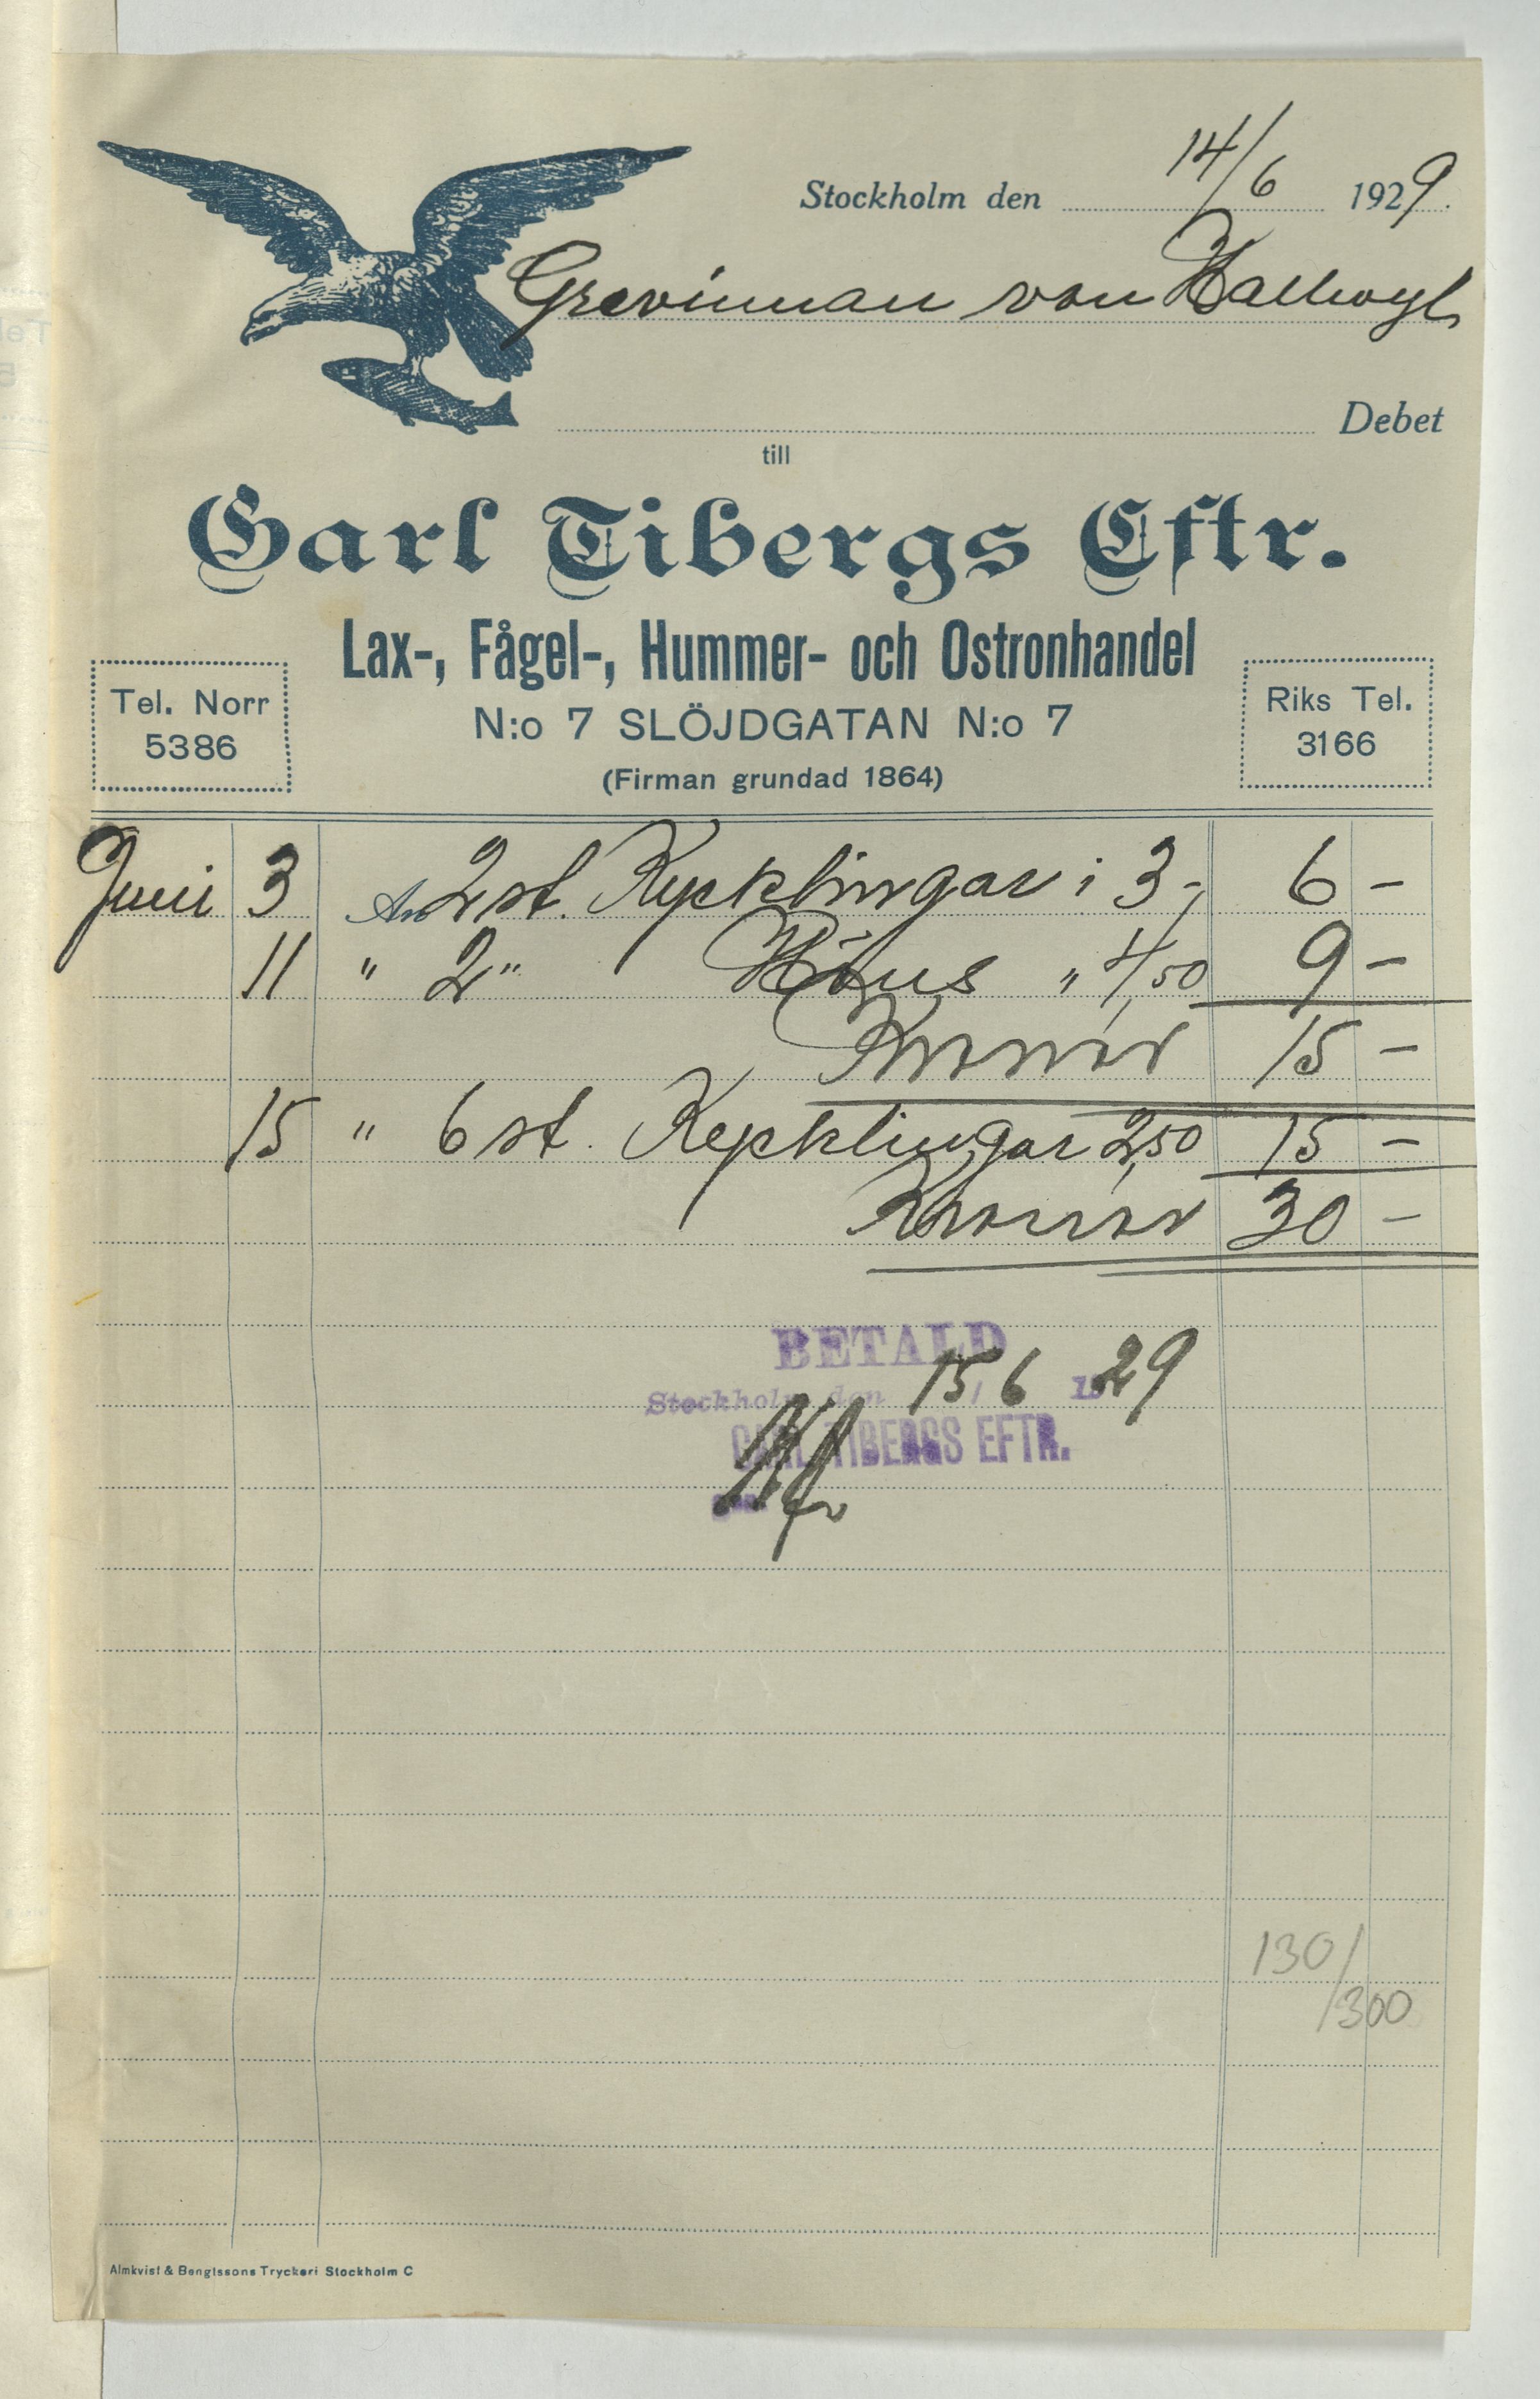 Stockholm den 14/6 1929.
Grevinnan von Hallwyl
Debet
till
Carl Tibergs Eftr.
Lax-, Fågel-, Hummer- och Ostronhandel
Tel. Norr
5386
N:o 7 SLÖJDGATAN N:o 7
Riks Tel.
3166
(Firman grundad 1864)
Juni 3 An 2 st. Kycklingar i 3- 6 -
11 " 2 " Höns " 4,50 9 -
Kronor 15 -
15 " 6 st. Kycklingar 2,50 15 -
Kronor 30 -
BETALD
Stockholm den 15/6 1929
CARL TIBERGS EFTR.
130/300
Almkvist & Bengtssons Tryckeri Stockholm C